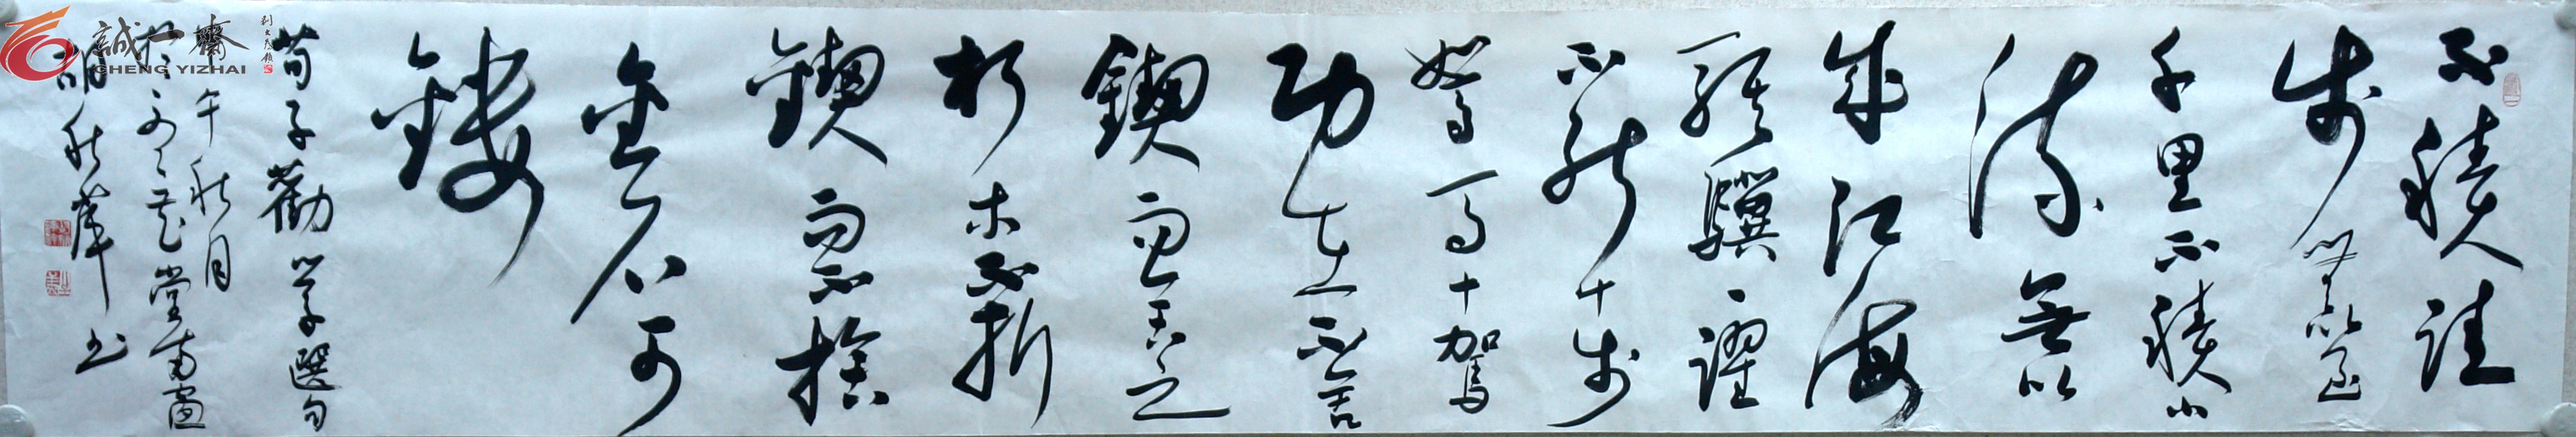 不積跬
步無以至
千里不積小
流無以
成江海
騏驥一躍
不能十步
駑馬十駕
功在不舍
鍥而舍之
朽木不折
鍥而不捨
金石可
鏤
荀子勸學選句
午秋月
於堂南窗
胡秋萍书
誠一齋
CHENG YIZHAI